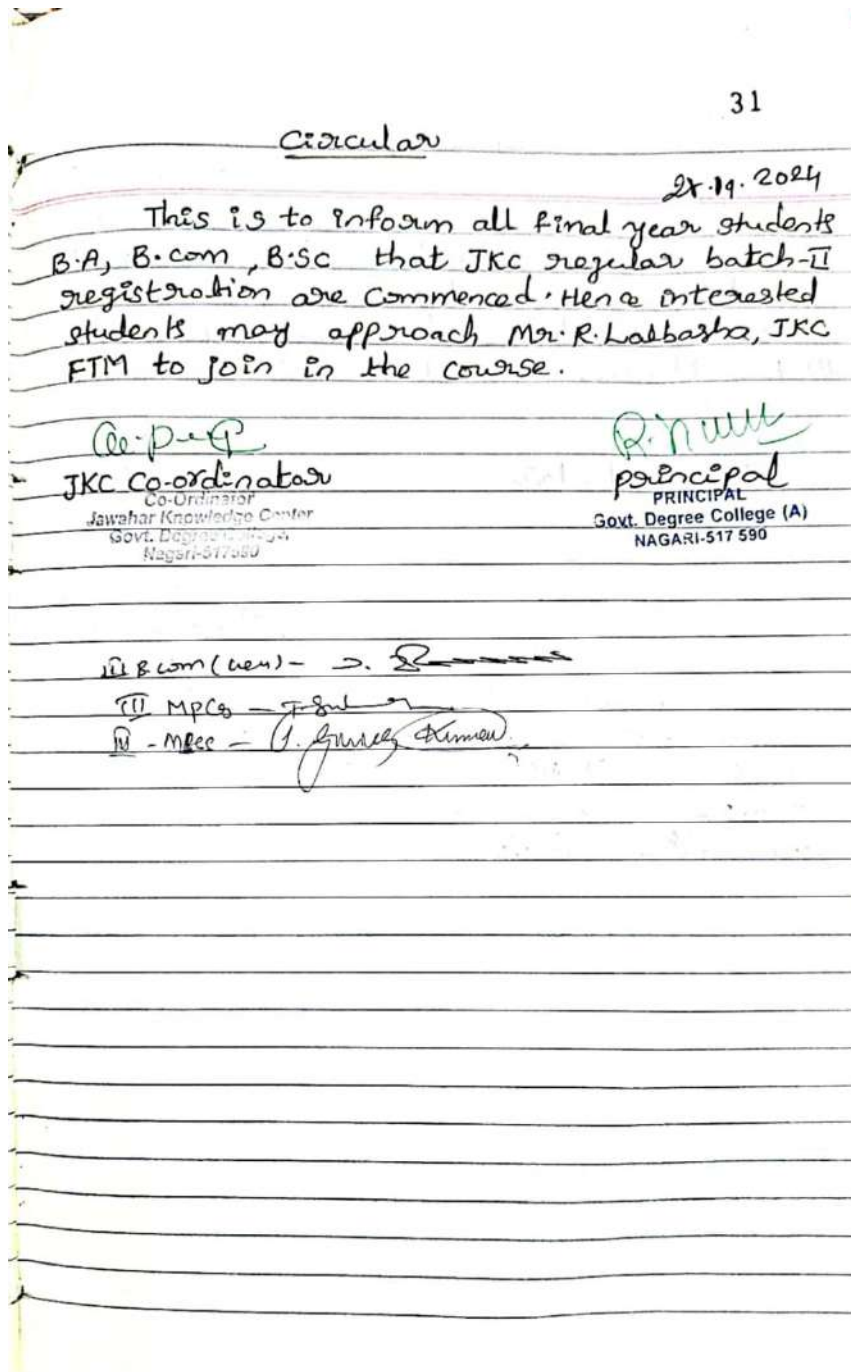 31
Circular
2024
This is to inform all final year students
B.A, B.com, B.Sc that JKC regular batch-II
registration are commenced. Hence interested
students may approach Mr. R. Lalbasha, JKC
FTM to join in the course.
JKC Co-ordinator
Co-Ordinator
Jawahar Knowledge Center
Govt. Degree College
Nagari-517590
principal
PRINCIPAL
Govt. Degree College (A)
NAGARI-517 590
III B com (Gen) -
III MPCs -
III - MPCC -